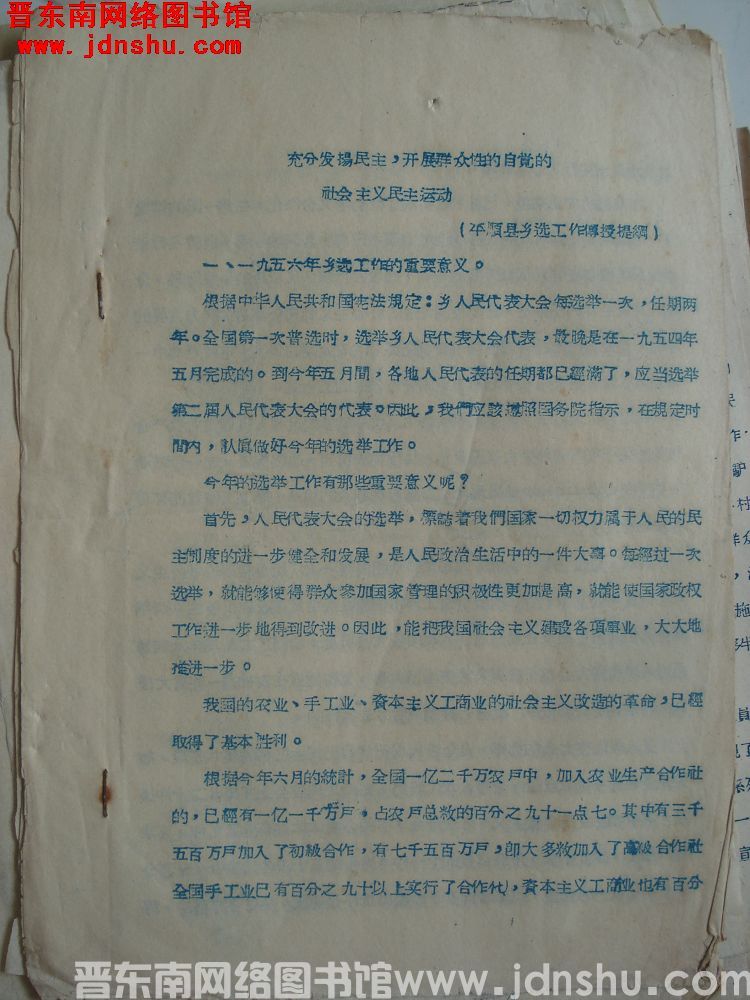 晋东南网络图书馆
www.jdnshu.com
充分发揚民主，开展群众性的自觉的
社会主义民主运动
（平順县乡选工作傳授提綱）
一、一九五六年乡选工作的重要意义。
根据中华人民共和国宪法規定：乡人民代表大会每选举一次，任期两
年。全国第一次普选时，选举乡人民代表大会代表，最晚是在一九五四年
五月完成的。到今年五月間，各地人民代表的任期都已經滿了，应当选举
第二届人民代表大会的代表。因此，我們应該遵照国务院指示，在規定时
間內，認真做好今年的选举工作。
今年的选举工作有那些重要意义呢？
首先，人民代表大会的选举，标誌着我們国家一切权力属于人民的民
主制度的进一步健全和发展，是人民政治生活中的一件大事。每經过一次
选举，就能够使得群众參加国家管理的积极性更加提高，就能使国家政权
工作进一步地得到改进。因此，能把我国社会主义建設各項事业，大大地
推进一步。
我国的农业、手工业、資本主义工商业的社会主义改造的革命，已經
取得了基本胜利。
根据今年六月的統計，全国一亿二千万农戶中，加入农业生产合作社
的，已經有一亿一千万戶，占农戶总数的百分之九十一点七。其中有三千
五百万戶加入了初級合作，有七千五百万戶，卽大多数加入了高級合作社
全国手工业已有百分之九十以上实行了合作化，資本主义工商业也有百分
晋东南网络图书馆www.jdnshu.com